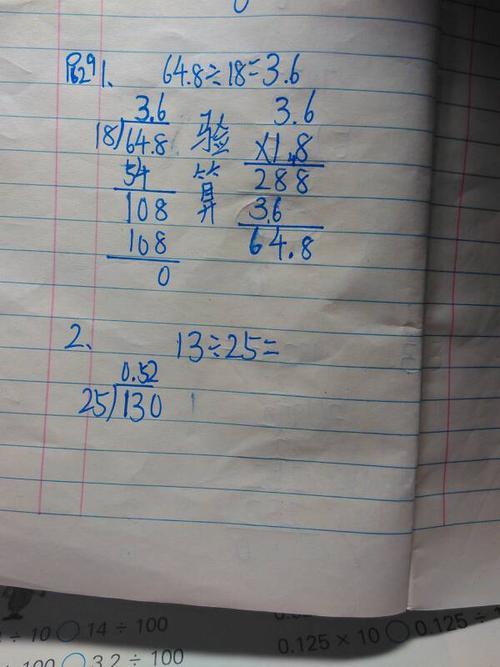 P29 1、 64.8÷18=3.6
3.6
18)64.8
54
108
108
0
验算
3.6
×1.8
288
3.6
64.8
2、 13÷25=
0.52
25)130
÷ 10○14 ÷ 100
0.125 × 10○0.125 ÷
○3.2 ÷ 100